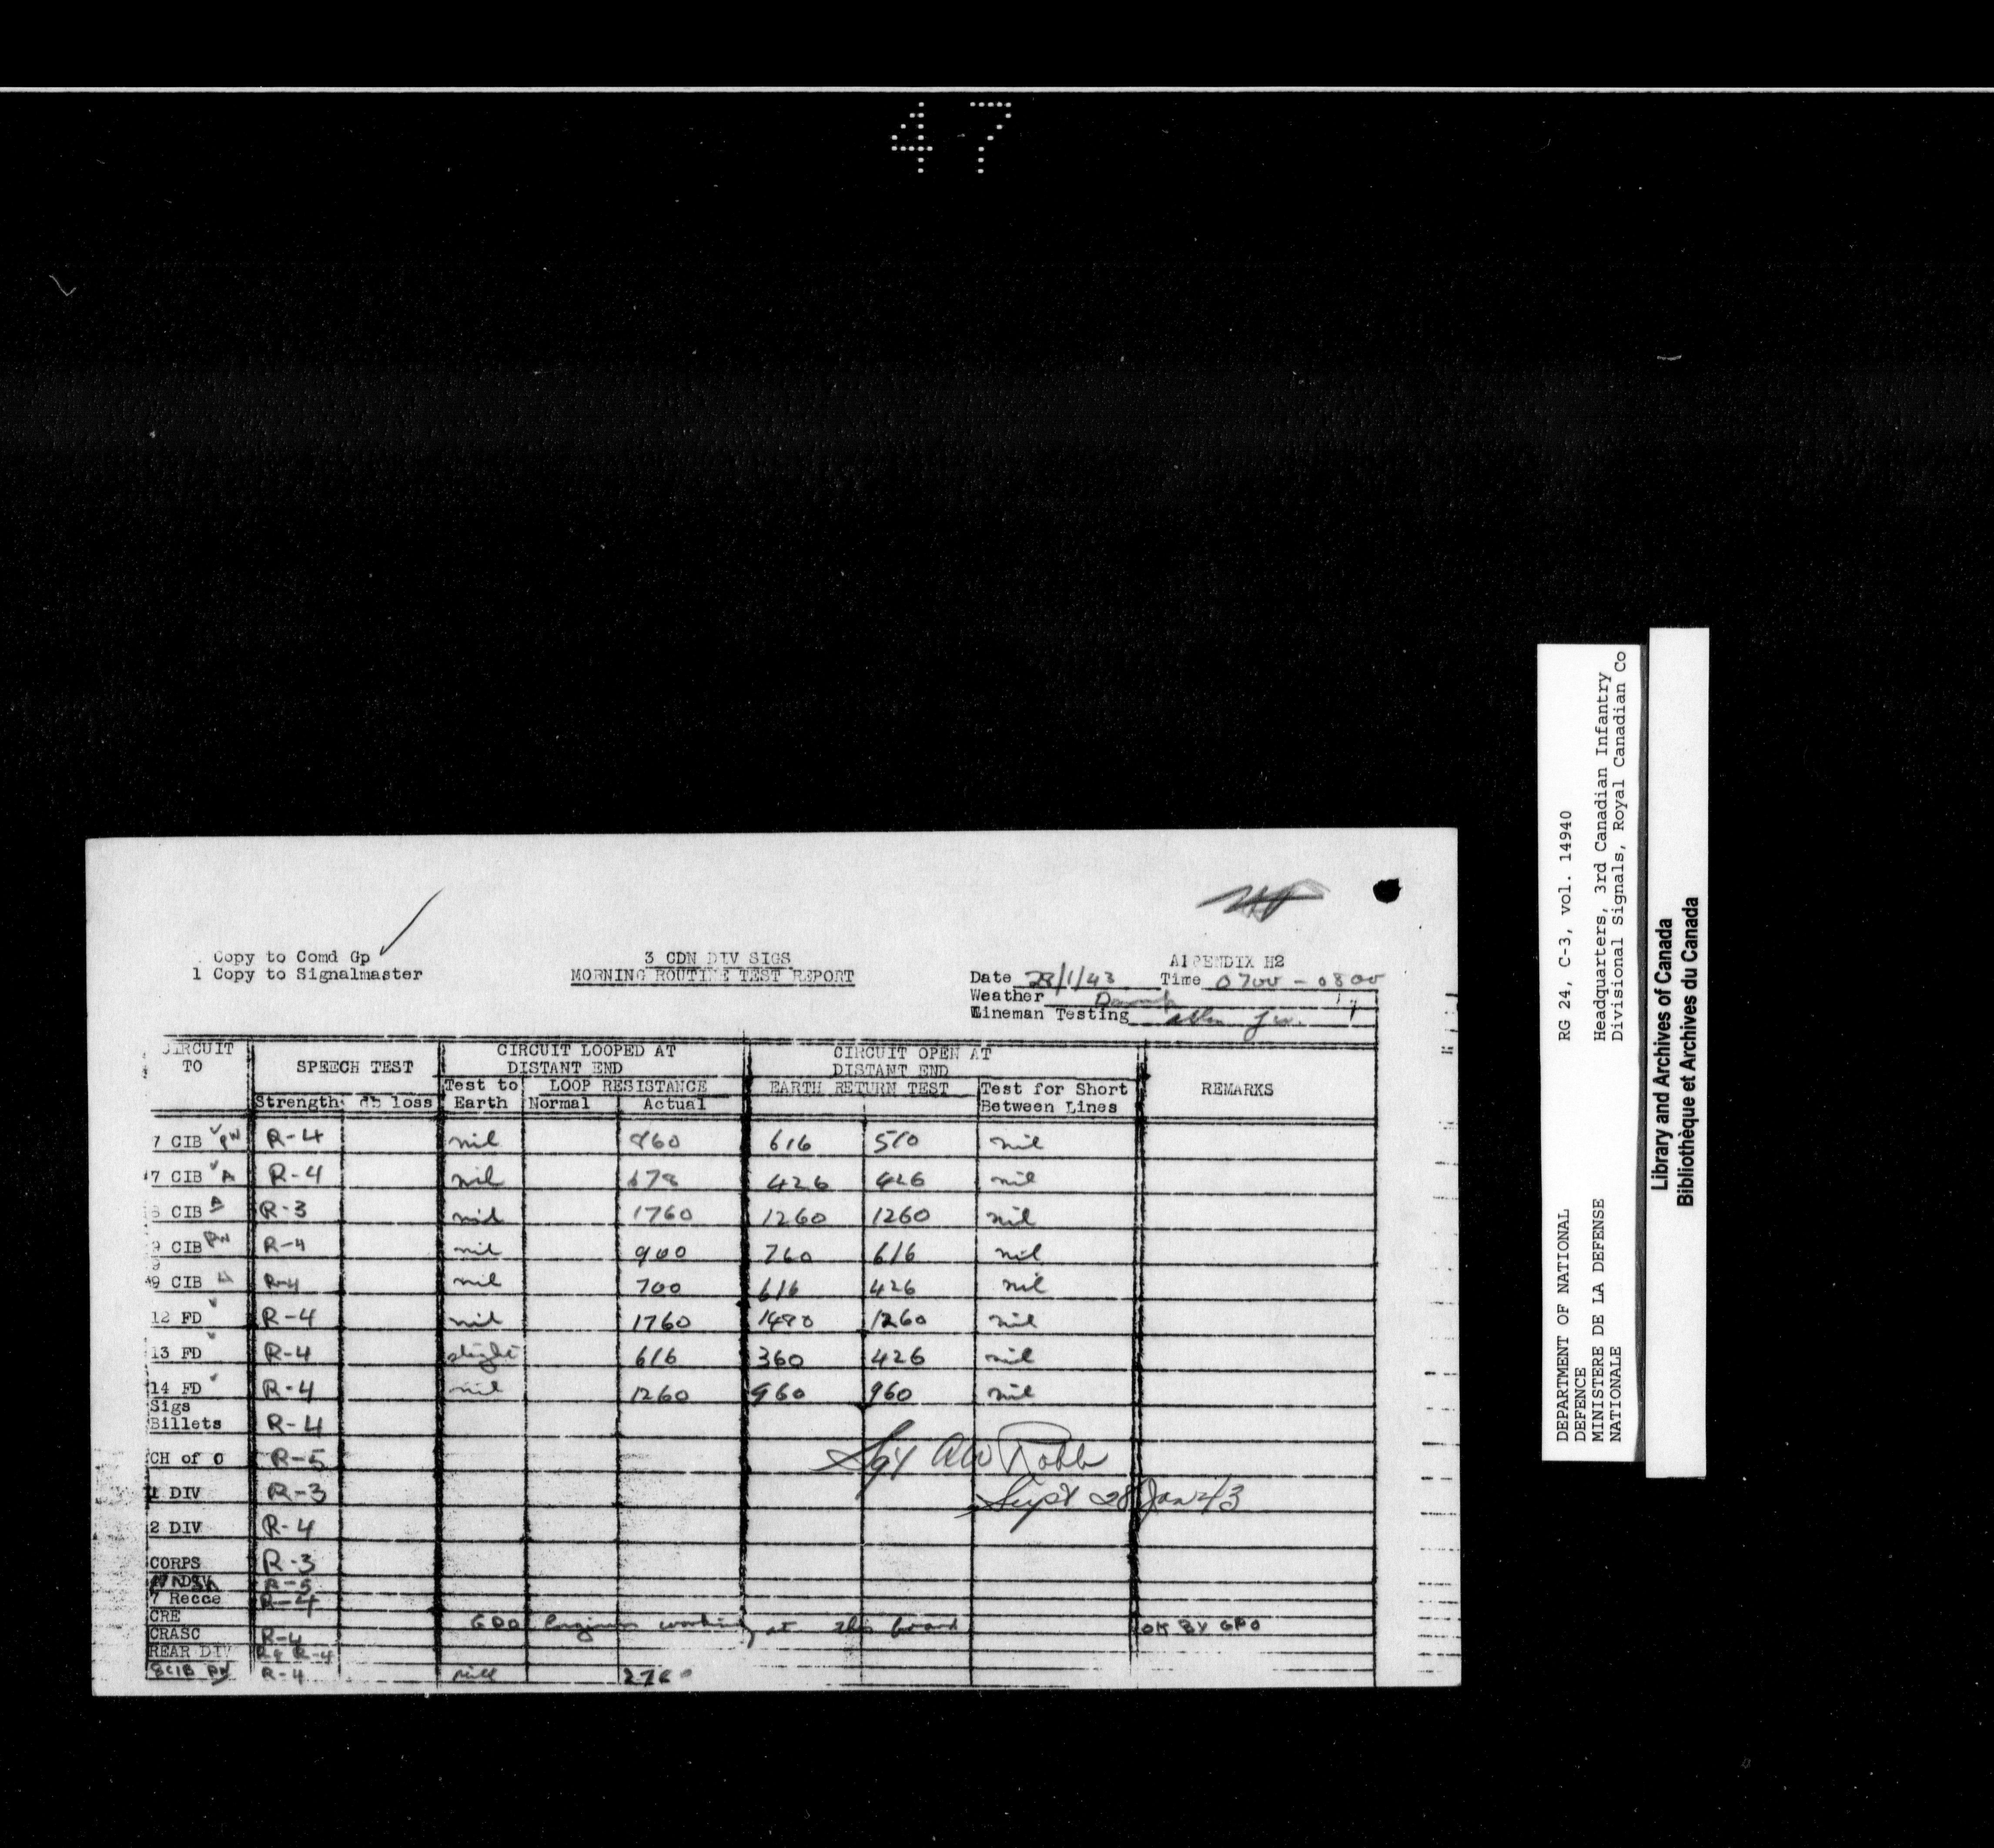 47
Copy to Comd Gp
1 Copy to Signalmaster
3 CDN DIV SIGS
MORNING ROUTINE TEST REPORT
APPENDIX H2
Date 28/1/43 Time 0700 - 0800
Weather Damp
Lineman Testing
CIRCUIT TO
SPEECH TEST
CIRCUIT LOOPED AT DISTANT END
CIRCUIT OPEN AT DISTANT END
REMARKS
Strength db loss
Test to Earth
LOOP RESISTANCE
Normal Actual
EARTH RETURN TEST
Test for Short Between Lines
7 CIB PW R-4 nil 960 616 510 nil
7 CIB A R-4 nil 678 426 426 nil
8 CIB A R-3 nil 1760 1260 1260 nil
9 CIB PW R-4 nil 900 760 616 nil
9 CIB A R-4 nil 700 616 426 nil
12 FD R-4 nil 1760 1480 1260 nil
13 FD R-4 slight 616 360 426 nil
14 FD R-4 nil 1260 960 960 nil
Sigs
Billets R-4
CH of O R-5
1 DIV R-3
2 DIV R-4
CORPS R-3
R-5
7 Recce R-4
CRE GPO Engineers working at this board OK BY GPO
CRASC R-4
REAR DIV R-4
8 CIB PW R-4 nil 2760
Sgt AW Robb
Supt 28 Jan 43
DEPARTMENT OF NATIONAL
DEFENCE
MINISTERE DE LA DEFENSE
NATIONALE
RG 24, C-3, vol. 14940
Headquarters, 3rd Canadian Infantry
Divisional Signals, Royal Canadian Co
Library and Archives of Canada
Bibliothèque et Archives du Canada